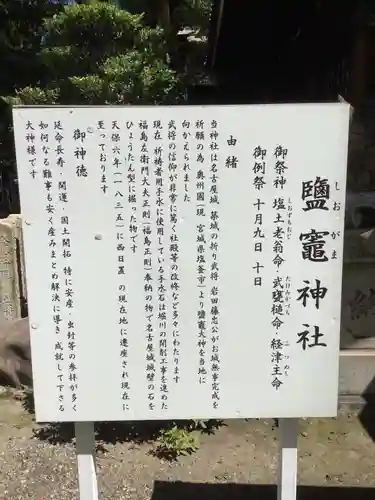 鹽竈神社
しおがま
御祭神 塩土老翁命・武甕槌命・経津主命
しおずちおじ
たけみかづち
ふつぬし
御例祭 十月九日 十日
由緒
当神社は名古屋城 築城の折り武将 岩田藤忠公がお城無事完成を
祈願の為 奥州国(現 宮城県塩釜市)より鹽竈大神を当地に
向かえられ
武将の信仰が非常に篤く社殿等の改修など多々にわたります
現在 祈祷者用手水に使用している手水石は堀川の開削工事を達した
福島左衛門大夫正則(福島正則)奉納の物で名古屋城城壁の石を
ひょうたん型に掘った物です
天保六年(一八三五)に西日置の現在地に遷座され現在に
至っております
御神徳
延命長寿・開運・国土開拓 特に安産・虫封等の参拝が多く
如何なる難事も安く産みまとめ解決に導き 成就して下さる
大神様です